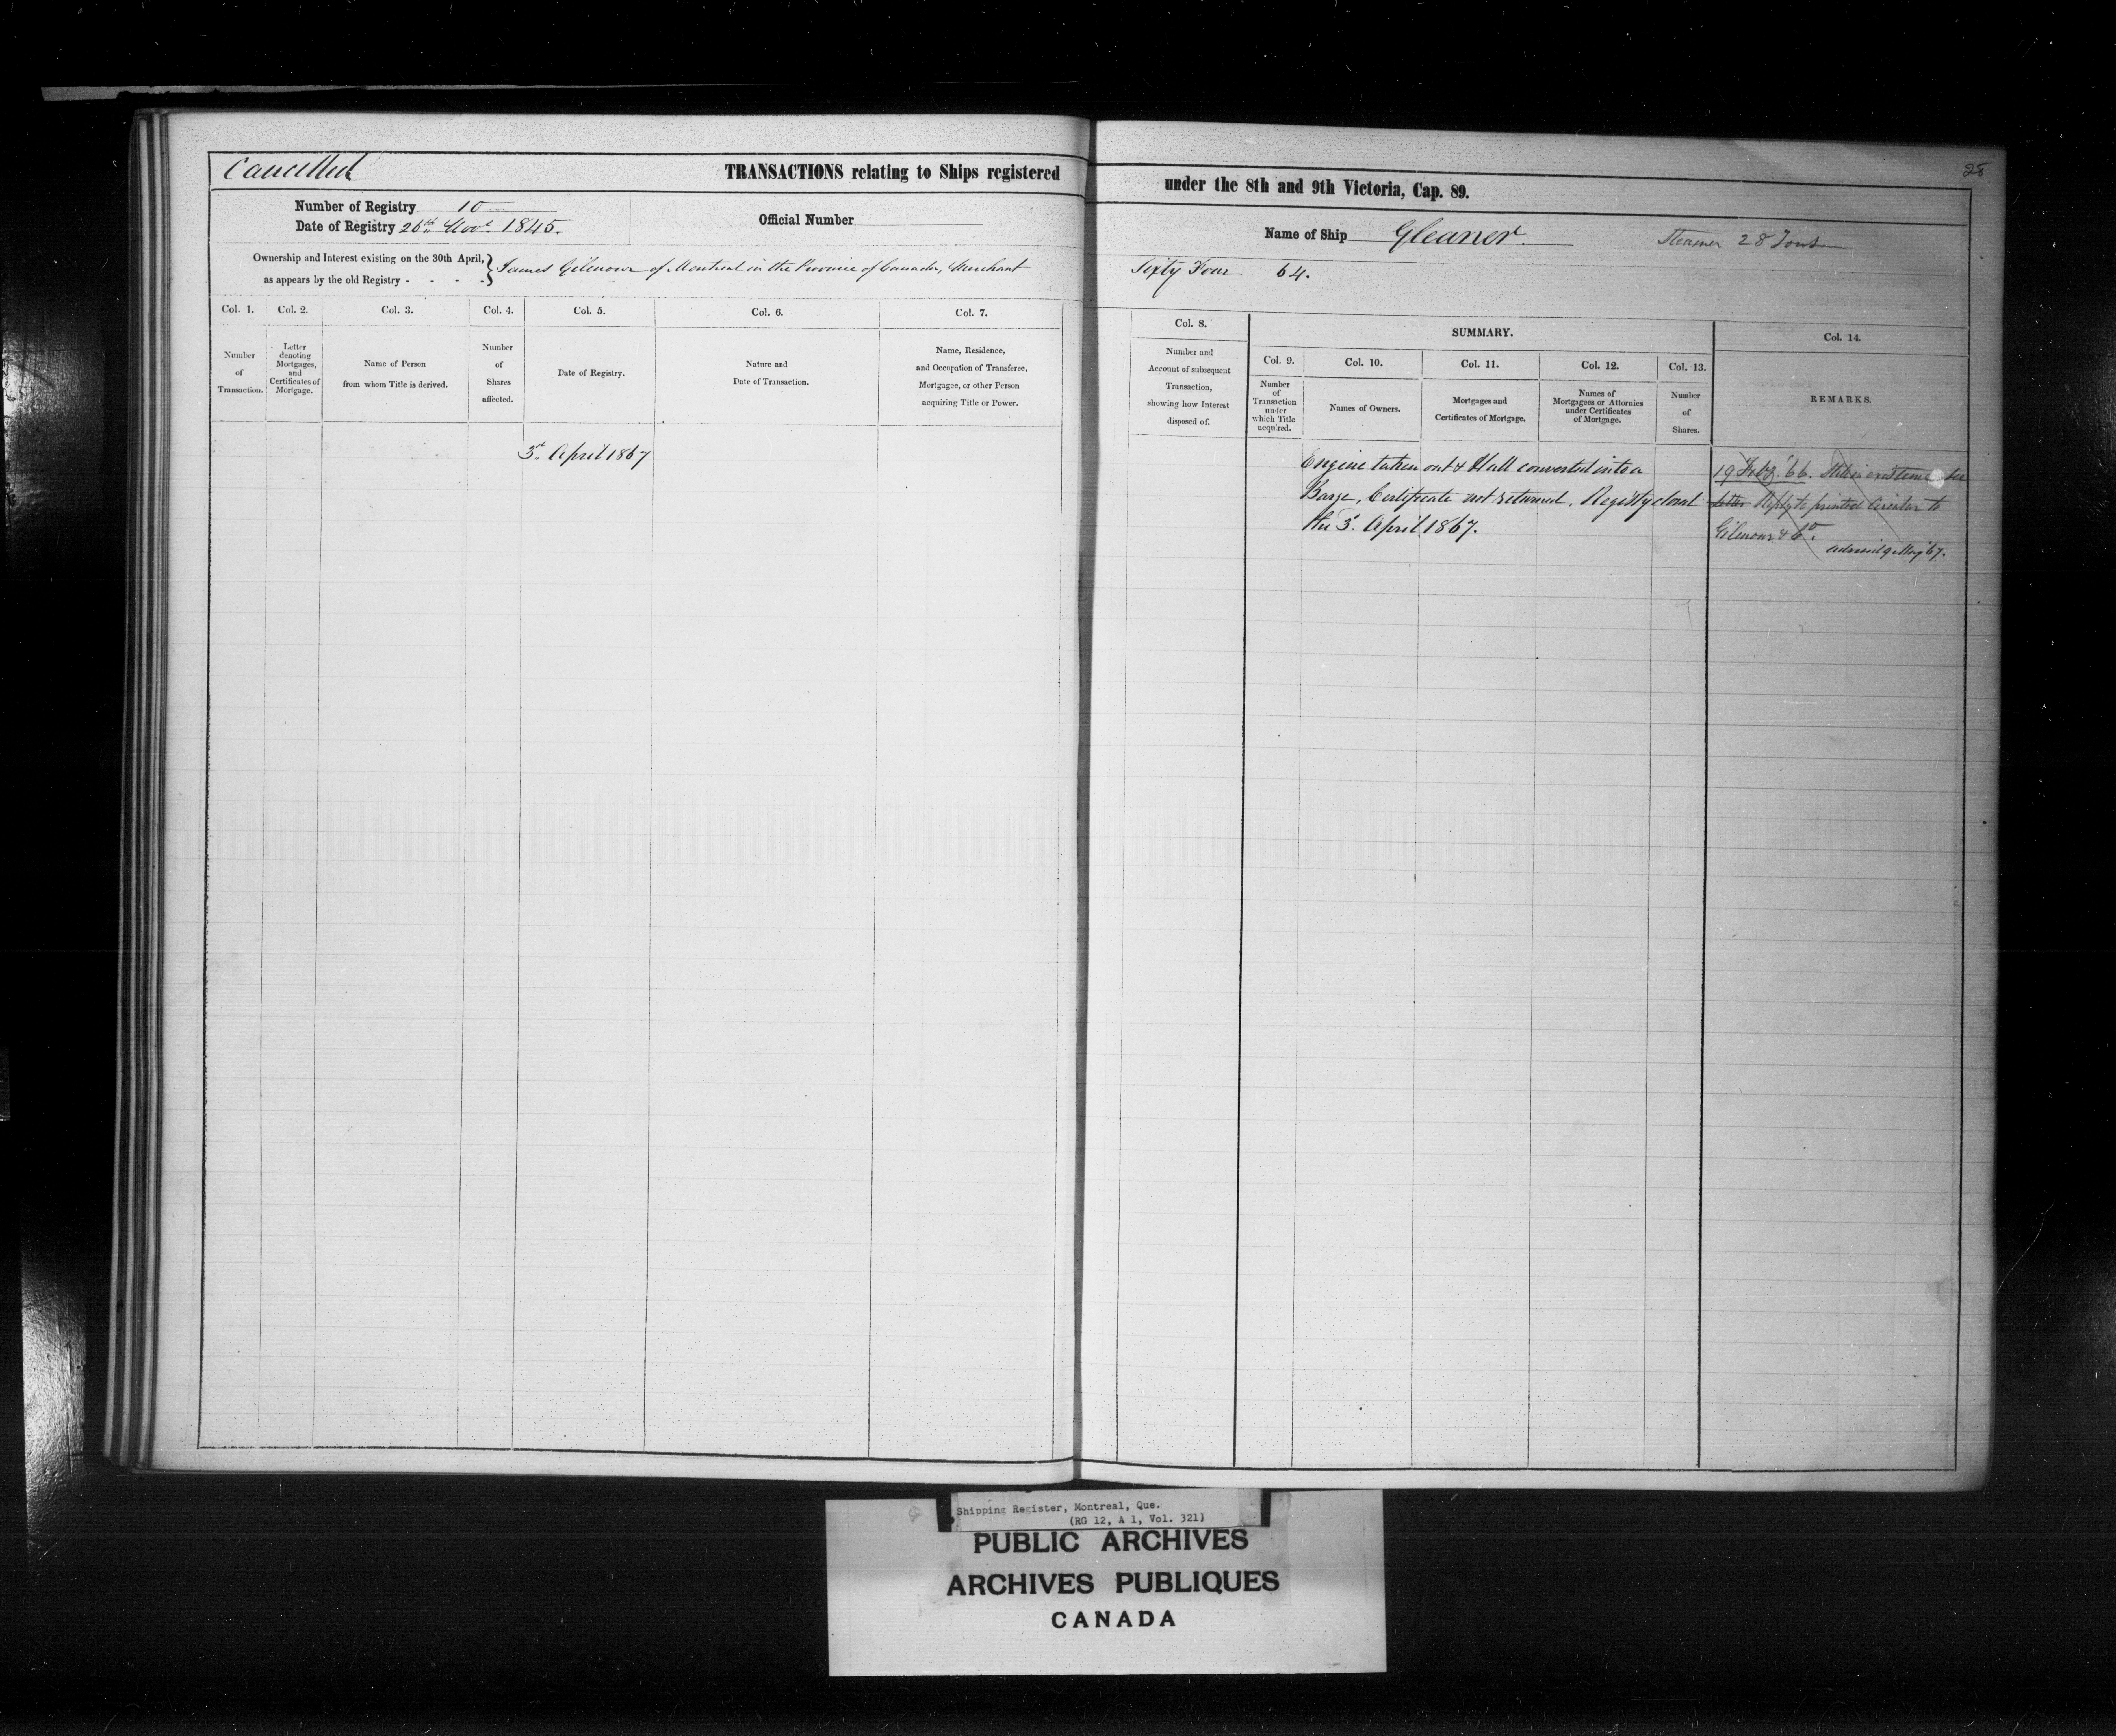 Cancelled
TRANSACTIONS relating to Ships registered
under the 8th and 9th Victoria, Cap. 89.
28
Number of Registry 10
Date of Registry 26th Novr 1845.
Official Number
Name of Ship Gleaner.
Steamer 28 Tons
Ownership and Interest existing on the 30th April,
as appears by the old Registry - - - -
James Gilmour of Montreal in the Province of Canada, Merchant
Sixty Four 64.
Col. 1.
Number
of
Transaction.
Col. 2.
Letter
denoting
Mortgages,
and
Certificates of
Mortgage.
Col. 3.
Name of Person
from whom Title is derived.
Col. 4.
Number
of
Shares
affected.
Col. 5.
Date of Registry.
Col. 6.
Nature and
Date of Transaction.
Col. 7.
Name, Residence,
and Occupation of Transferee,
Mortgagee, or other Person
acquiring Title or Power.
Col. 8.
Number and
Account of subsequent
Transaction,
showing how Interest
disposed of.
SUMMARY.
Col. 9.
Number
of
Transaction
under
which Title
acquired.
Col. 10.
Names of Owners.
Col. 11.
Mortgages and
Certificates of Mortgage.
Col. 12.
Names of
Mortgagees or Attornies
under Certificates
of Mortgage.
Col. 13.
Number
of
Shares.
Col. 14.
REMARKS.
3d April 1867
Engine taken out & Hull converted into a
Barge, Certificate not returned. Registry closed
the 3d April 1867.
19 Feby. '66. Still in existence see
letter Reply to printed Circular to
Gilmour & Co.
advised 9 May '67.
Shipping Register, Montreal, Que.
(RG 12, A 1, Vol. 321)
PUBLIC ARCHIVES
ARCHIVES PUBLIQUES
CANADA